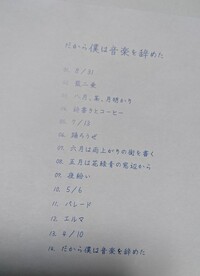 だから僕は音楽を辞めた
01. 8/31
02. 藍二乗
03. 八月、某、月明かり
04. 詩書きとコーヒー
05. 7/13
06. 踊ろうぜ
07. 六月は雨上がりの街を書く
08. 五月は花緑青の窓辺から
09. 夜紛い
10. 5/6
11. パレード
12. エルマ
13. 4/10
14. だから僕は音楽を辞めた